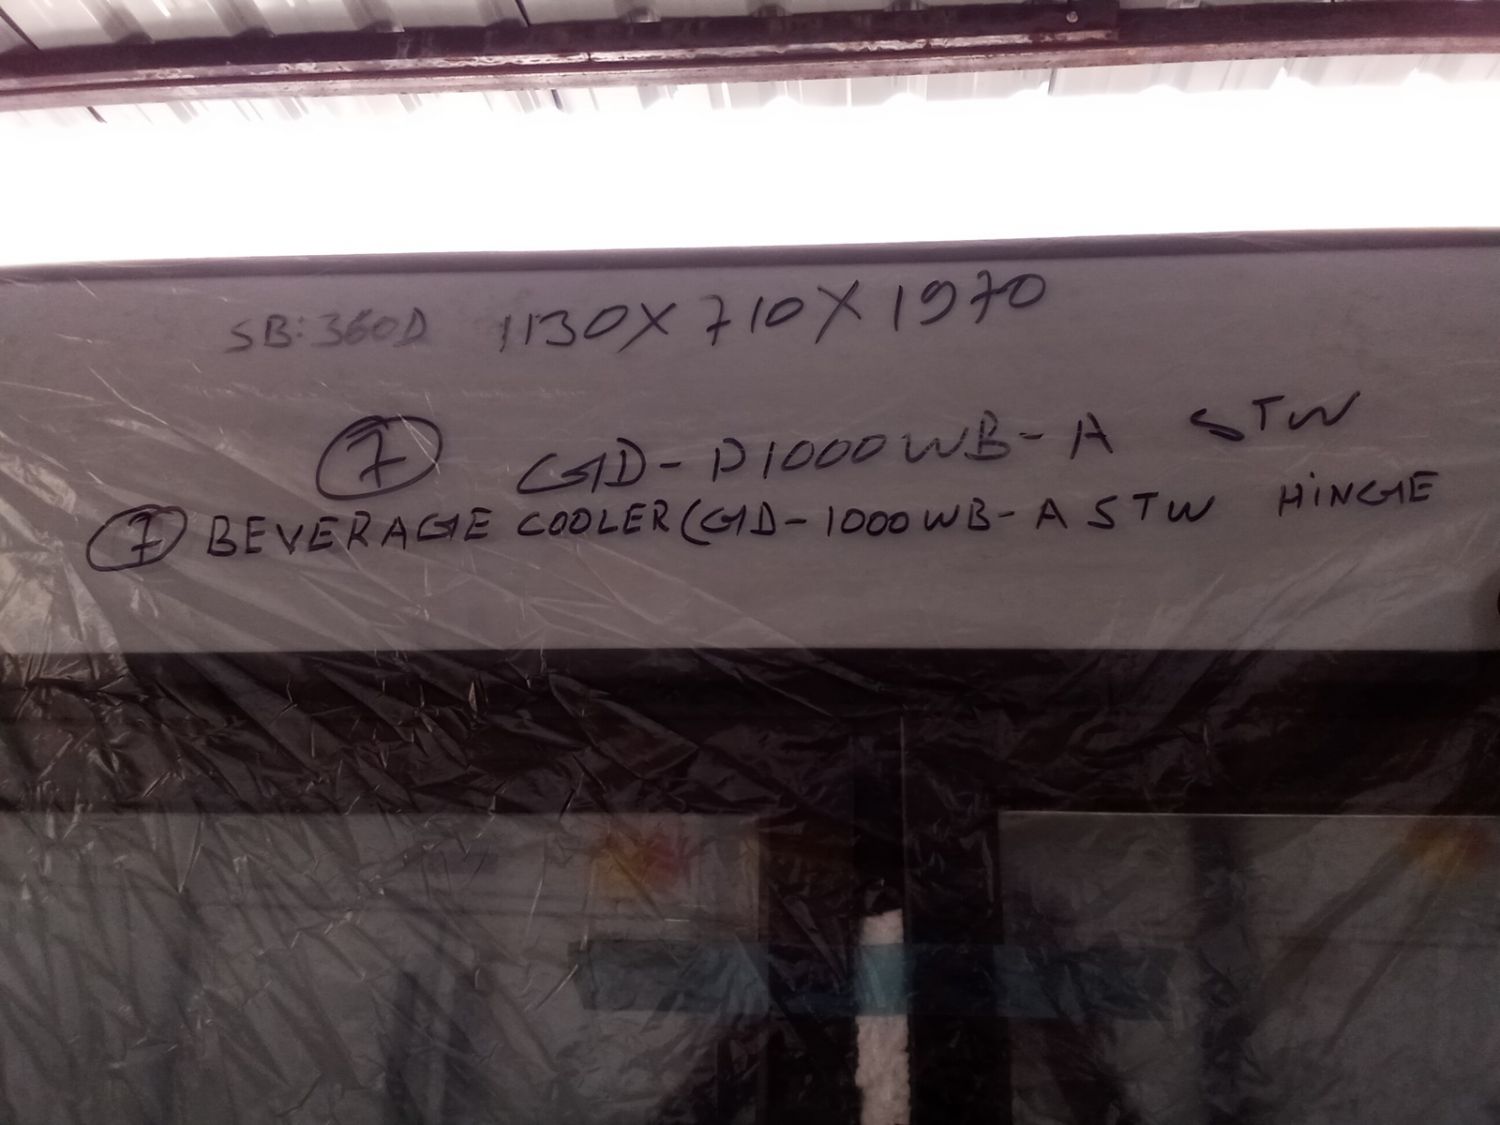 SB:360D 1130X710X1970
7 GD-D1000WB-A STW
7 BEVERAGE COOLER(GD-1000WB-A STW HiNGE